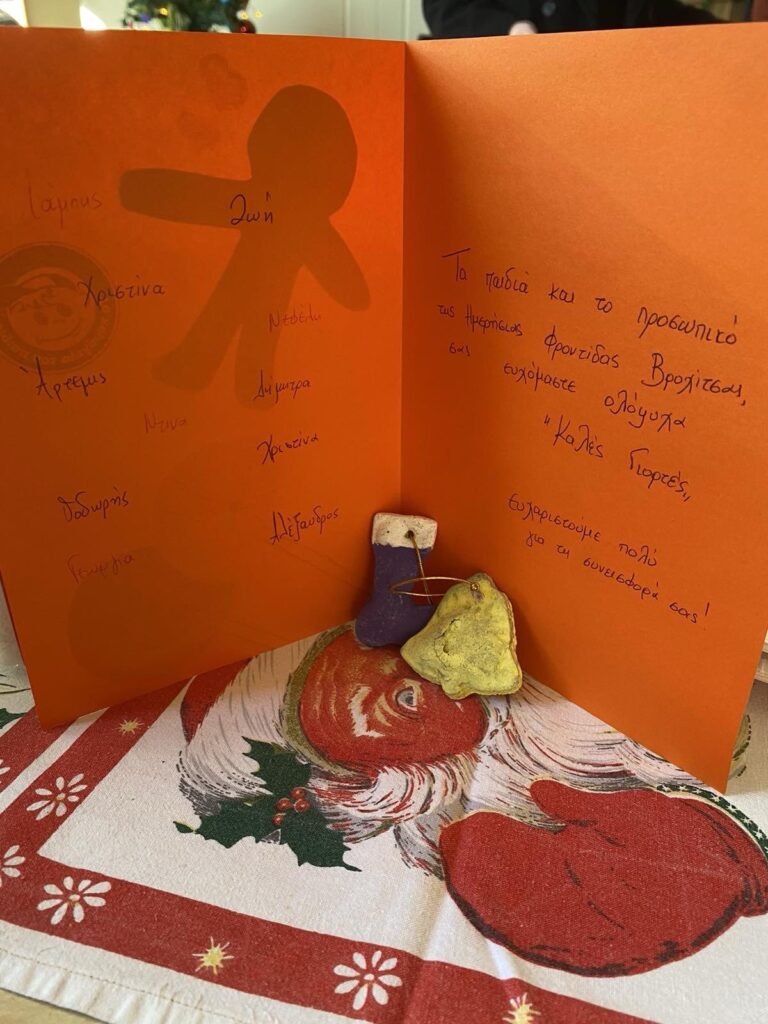 Ιάμπης
Ζωή
Χριστίνα
Νεφέλη
Άρτεμις
Δήμητρα
Ντίνα
Χριστίνα
Θοδωρής
Αλέξανδρος
Γεωργία
Τα παιδιά και το προσωπικό
της Ημερήσιας Φροντίδας Βροχίτσας,
σας ευχόμαστε ολόψυχα
"Καλές Γιορτές"
Ευχαριστούμε πολύ
για τη συνεισφορά σας!